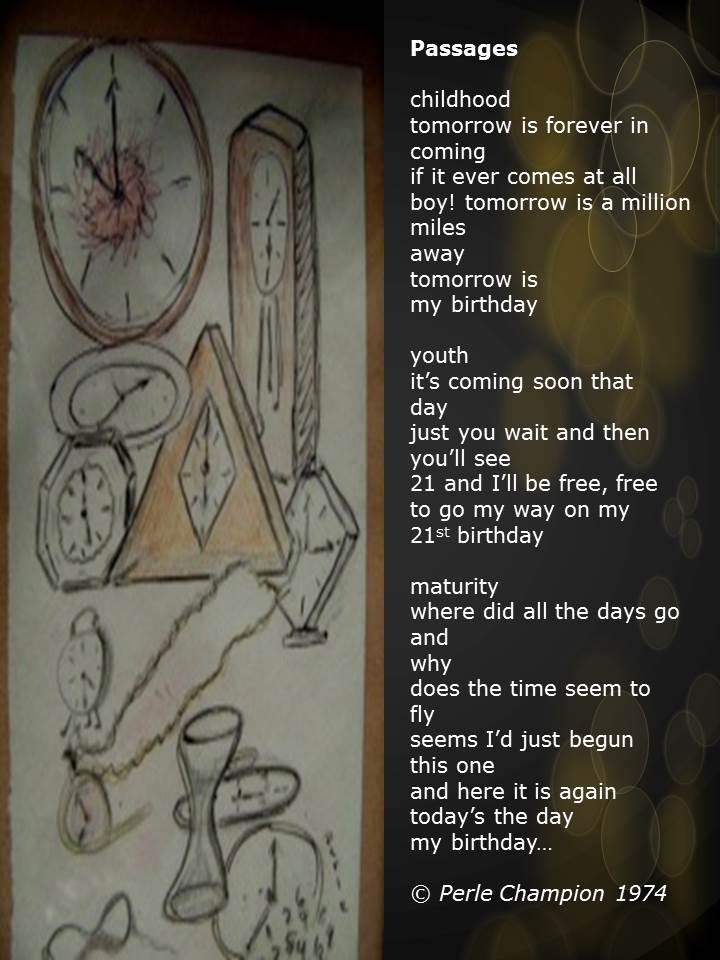 Passages
childhood
tomorrow is forever in
coming
if it ever comes at all
boy! tomorrow is a million
miles
away
tomorrow is
my birthday
youth
it’s coming soon that
day
just you wait and then
you’ll see
21 and I’ll be free, free
to go my way on my
21st birthday
maturity
where did all the days go
and
why
does the time seem to
fly
seems I’d just begun
this one
and here it is again
today’s the day
my birthday…
© Perle Champion 1974